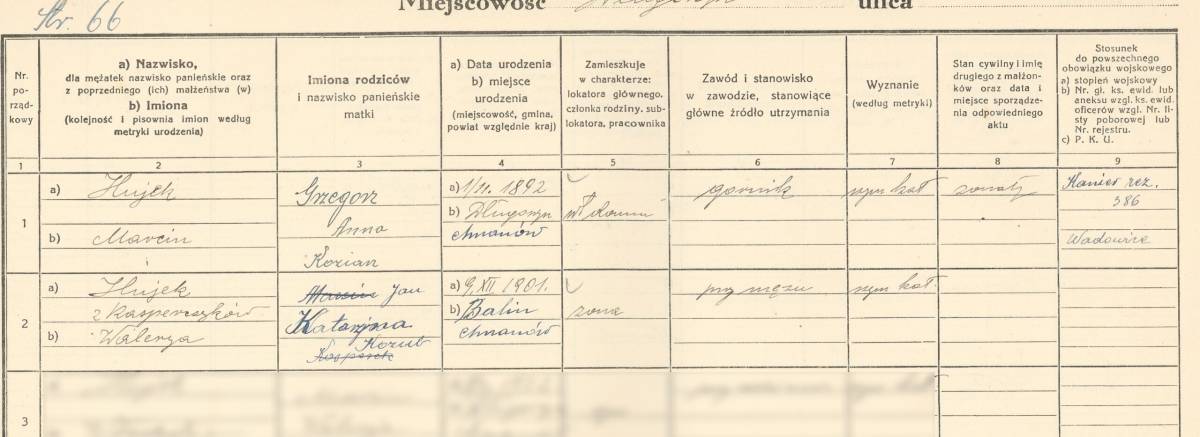 Str. 66
Miejscowość
ulica
Nr. porządkowy
a) Nazwisko,
dla mężatek nazwisko panieńskie oraz
z poprzedniego (ich) małżeństwa (w)
b) Imiona
(kolejność i pisownia imion według
metryki urodzenia)
Imiona rodziców
i nazwisko panieńskie
matki
a) Data urodzenia
b) miejsce
urodzenia
(miejscowość, gmina,
powiat względnie kraj)
Zamieszkuje
w charakterze:
lokatora głównego,
członka rodziny, sub-
lokatora, pracownika
Zawód i stanowisko
w zawodzie, stanowiące
główne źródło utrzymania
Wyznanie
(według metryki)
Stan cywilny i imię
drugiego z małżon-
ków oraz data i
miejsce sporządze-
nia odpowiedniego
aktu
Stosunek
do powszechnego
obowiązku wojskowego
a) stopień wojskowy
b) Nr. gł. ks. ewid. lub
aneksu wzgl. ks. ewid.
oficerów wzgl. Nr. li-
sty poborowej lub
Nr. rejestru.
c) P. K. U.
1 2 3 4 5 6 7 8 9
1
a) Hujek
b) Marcin
Grzegorz
Anna
Kozian
a) 1/11. 1892
b) Długoszyn
chrzanów
wł. domu
górnik
rzym kat
żonaty
rez.
386
Wadowice
2
a) Hujek
z Kasperczyków
b) Walerya
Marcin Jan
Katarzyna
Kozub
Kasperek
a) 9/XII 1901.
b) Balin
chrzanów
żona
przy mężu
rzym kat.
3